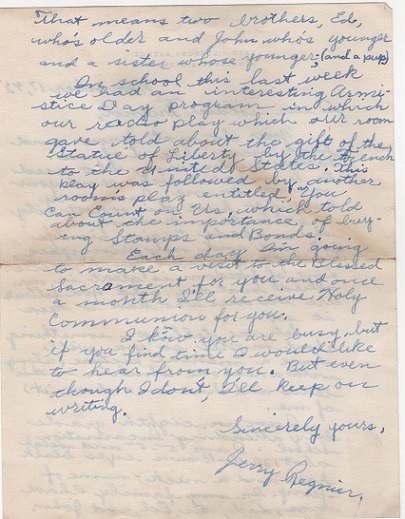 That means two brothers, Ed,
who's older and John who's younger
and a sister whose younger, (and a pup)
In school this last week
we had an interesting Armi-
stice Day program in which
our radio play which our room
gave told about the gift of the
Statue of Liberty by the French
to the United States. This
play was followed by another
rooms play entitled, "You
Can Count on Us, which told
about the importance of buy-
ing Stamps and Bonds.
Each day Im going
to make a visit to the Blessed
Sacrament for you and once
a month I'll receive Holy
Communion for you.
I know you are busy, but
if you find time I would like
to hear from you. But even
though I dont, I'll keep on
writing.
Sincerely yours,
Jerry Regnier.